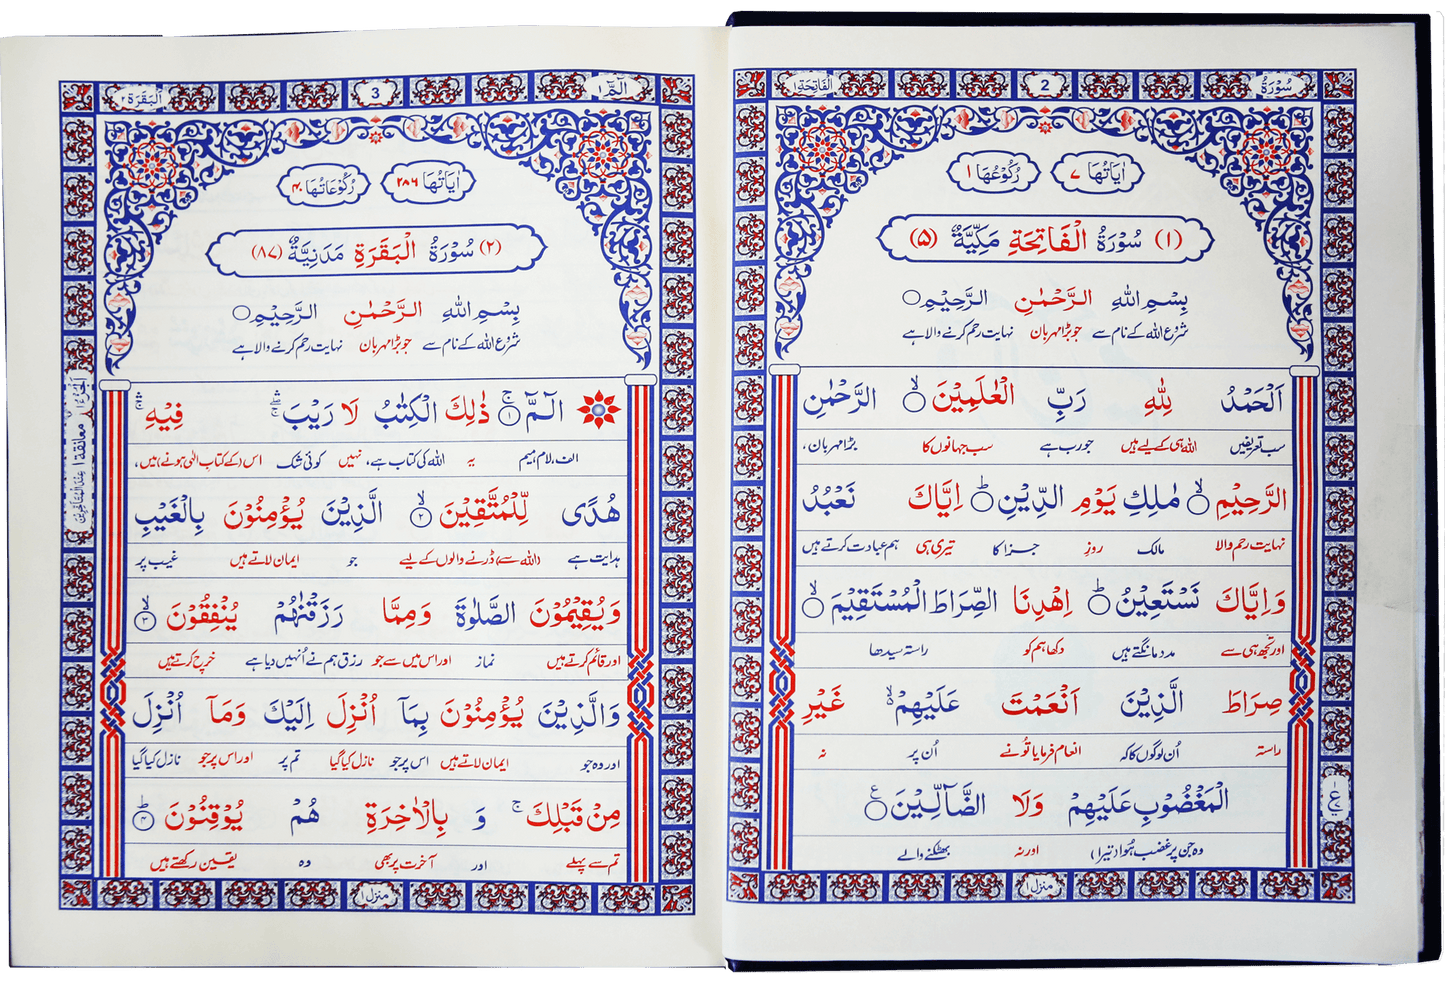 سُوْرَةُ
2
اَلْفَاتِحَة ١
اٰيَاتُهَا ٧
رُكُوْعُهَا ١
(١) سُوْرَةُ الْفَاتِحَةِ مَكِّيَّةٌ (٥)
بِسْمِ اللهِ الرَّحْمٰنِ الرَّحِيْمِ ○
شروع اللہ کے نام سے جو بڑا مہربان نہایت رحم کرنے والا ہے
اَلْحَمْدُ لِلّٰهِ رَبِّ الْعٰلَمِيْنَ ۙ الرَّحْمٰنِ
سب تعریفیں اللہ ہی کے لیے ہیں جو رب ہے سب جہانوں کا بڑا مہربان،
الرَّحِيْمِ ۙ مٰلِكِ يَوْمِ الدِّيْنِ ؕ اِيَّاكَ نَعْبُدُ
نہایت رحم والا مالک روزِ جزا کا تیری ہی ہم عبادت کرتے ہیں
وَاِيَّاكَ نَسْتَعِيْنُ ؕ اِهْدِنَا الصِّرَاطَ الْمُسْتَقِيْمَ ۙ
اور تجھ ہی سے مدد مانگتے ہیں دکھا ہم کو راستہ سیدھا
صِرَاطَ الَّذِيْنَ اَنْعَمْتَ عَلَيْهِمْ ۙ غَيْرِ
راستہ اُن لوگوں کا کہ انعام فرمایا تُو نے اُن پر نہ
الْمَغْضُوْبِ عَلَيْهِمْ وَلَا الضَّآلِّيْنَ
وہ جن پر غضب ہُوا (تیرا) اور نہ بھٹکنے والے
منزل ١
الٓمّٓ ١
3
اَلْبَقَرَة ٢
اٰيَاتُهَا ٢٨٦
رُكُوْعَاتُهَا ٤٠
(٢) سُوْرَةُ الْبَقَرَةِ مَدَنِيَّةٌ (٨٧)
بِسْمِ اللهِ الرَّحْمٰنِ الرَّحِيْمِ ○
شروع اللہ کے نام سے جو بڑا مہربان نہایت رحم کرنے والا ہے
الٓمّٓ ۚ ١ ذٰلِكَ الْكِتٰبُ لَا رَيْبَ ۛ فِيْهِ ۛ
الف، لام، میم یہ اللہ کی کتاب ہے، نہیں کوئی شک اس (کے کتاب الٰہی ہونے) میں،
هُدًى لِّلْمُتَّقِيْنَ ۙ ٢ الَّذِيْنَ يُؤْمِنُوْنَ بِالْغَيْبِ
ہدایت ہے (اللہ سے) ڈرنے والوں کے لیے جو ایمان لاتے ہیں غیب پر
وَيُقِيْمُوْنَ الصَّلٰوةَ وَمِمَّا رَزَقْنٰهُمْ يُنْفِقُوْنَ ۙ ٣
اور قائم کرتے ہیں نماز اور اس میں سے جو رزق ہم نے اُنہیں دیا ہے خرچ کرتے ہیں
وَالَّذِيْنَ يُؤْمِنُوْنَ بِمَآ اُنْزِلَ اِلَيْكَ وَمَآ اُنْزِلَ
اور وہ جو ایمان لاتے ہیں اس پر جو نازل کیا گیا تم پر اور اس پر جو نازل کیا گیا
مِنْ قَبْلِكَ ۚ وَ بِالْاٰخِرَةِ هُمْ يُوْقِنُوْنَ ؕ ٤
تم سے پہلے اور آخرت پر بھی وہ یقین رکھتے ہیں
منزل ١
معانقة ١ عِنْدَ الْمُتَأَخِّرِيْنَ